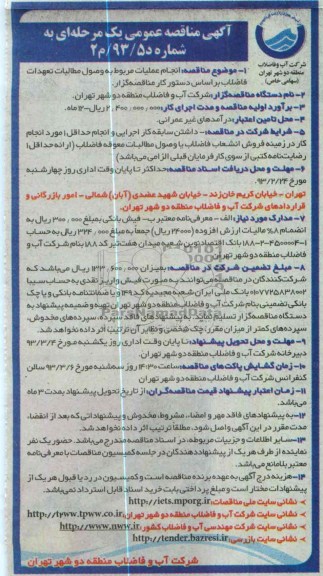 آگهی مناقصه عمومی یک مرحله‌ای به
شماره ۹۳/۵۵/م۲
شرکت آب و فاضلاب
منطقه دو شهر تهران
(سهامی خاص)
۱- موضوع مناقصه: انجام عملیات مربوط به وصول مطالبات تعهدات
فاضلاب بر اساس دستور کار مناقصه‌گزار.
۲- نام دستگاه مناقصه‌گزار: شرکت آب و فاضلاب منطقه دو شهر تهران.
۳- برآورد اولیه مناقصه و مدت اجرای کار: ۲،۴۰۰،۰۰۰،۰۰۰ ریال-۱۲ ماه.
۴- محل تامین اعتبار: درآمدهای غیر عمرانی.
۵- شرایط شرکت در مناقصه:- داشتن سابقه کار اجرایی و انجام حداقل ۱ مورد انجام
کار در زمینه فروش انشعاب فاضلاب یا وصول مطالبات معوقه فاضلاب (ارائه حداقل ۱
رضایت‌نامه کتبی از سوی کارفرمایان قبلی الزامی می‌باشد)
۶- مهلت و محل دریافت اسناد مناقصه: حداکثر تا پایان وقت اداری روز چهارشنبه
مورخ ۹۳/۲/۲۴
تهران - خیابان کریم خان زند - خیابان شهید عضدی (آبان) شمالی - امور بازرگانی و
قراردادهای شرکت آب و فاضلاب منطقه دو شهر تهران.
۷- مدارک مورد نیاز: الف - معرفی‌نامه معتبر ب- فیش بانکی بمبلغ ۳۰۰،۰۰۰ ریال به
انضمام ۸% مالیات ارزش افزوده (۲۴۰۰۰ ریال) جمعاً به مبلغ ۳۲۴،۰۰۰ ریال به حساب
بانک اقتصاد نوین شعبه میدان هفت تیر کد ۱۸۸ بنام شرکت آب و
فاضلاب منطقه دو شهر تهران
۸- مبلغ تضمین شرکت در مناقصه: بمیزان ۱۳۳،۶۰۰،۰۰۰ ریال می‌باشد که
شرکت‌کنندگان در مناقصه می‌توانند به صورت فیش واریز نقدی به حساب سیبا
بانک ملی ایران شعبه مجیدیه کد ۱۶۰ یا ضمانتنامه بانکی و یا چک
بانکی تضمینی بنام شرکت آب و فاضلاب منطقه دو شهر تهران تهیه و ضمیمه پیشنهاد به
دستگاه مناقصه‌گزار تسلیم دارند. به پیشنهادهای فاقد سپرده، سپرده‌های مخدوش،
سپرده‌های کمتر از میزان مقرر، چک شخصی و نظایر آن ترتیب اثر داده نخواهد شد.
۹- مهلت و محل تحویل پیشنهاد: تا پایان وقت اداری روز یکشنبه مورخ ۹۳/۳/۴
دبیرخانه شرکت آب و فاضلاب منطقه دو شهر تهران
۱۰- زمان گشایش پاکت‌های مناقصه: ساعت ۱۴:۳۰ روز سه‌شنبه مورخ ۹۳/۳/۶ سالن
کنفرانس شرکت آب و فاضلاب منطقه دو شهر تهران.
۱۱- زمان اعتبار پیشنهاد قیمت مناقصه‌گران: از تاریخ تحویل پیشنهاد بمدت ۳ ماه
می‌باشد.
۱۲- به پیشنهادهای فاقد مهر و امضاء، مشروط، مخدوش و پیشنهاداتی که بعد از انقضاء
مدت مقرر در این آگهی واصل شود، مطلقاً ترتیب اثر داده نخواهد شد.
۱۳- سایر اطلاعات و جزییات مربوطه، در اسناد مناقصه مندرج می‌باشد. حضور یک نفر
نماینده از طرف هر یک از پیشنهاددهندگان در جلسه کمیسیون مناقصات با معرفی‌نامه
معتبر بلامانع می‌باشد.
۱۴- هزینه درج آگهی به عهده برنده مناقصه است و کمیسیون در رد یا قبول هر یک از
پیشنهادات مختار است و مبلغ پرداختی بابت خرید اسناد قابل استرداد نمی‌باشد.
نشانی سایت ملی مناقصات: http://iets.mporg.ir
نشانی سایت شرکت آب و فاضلاب منطقه دو شهر تهران: http://www.tpww.co.ir
نشانی سایت شرکت مهندسی آب و فاضلاب کشور: http://www.nww.ir
نشانی سایت بازرسی: http://tender.bazresi.ir
شرکت آب و فاضلاب منطقه دو شهر تهران